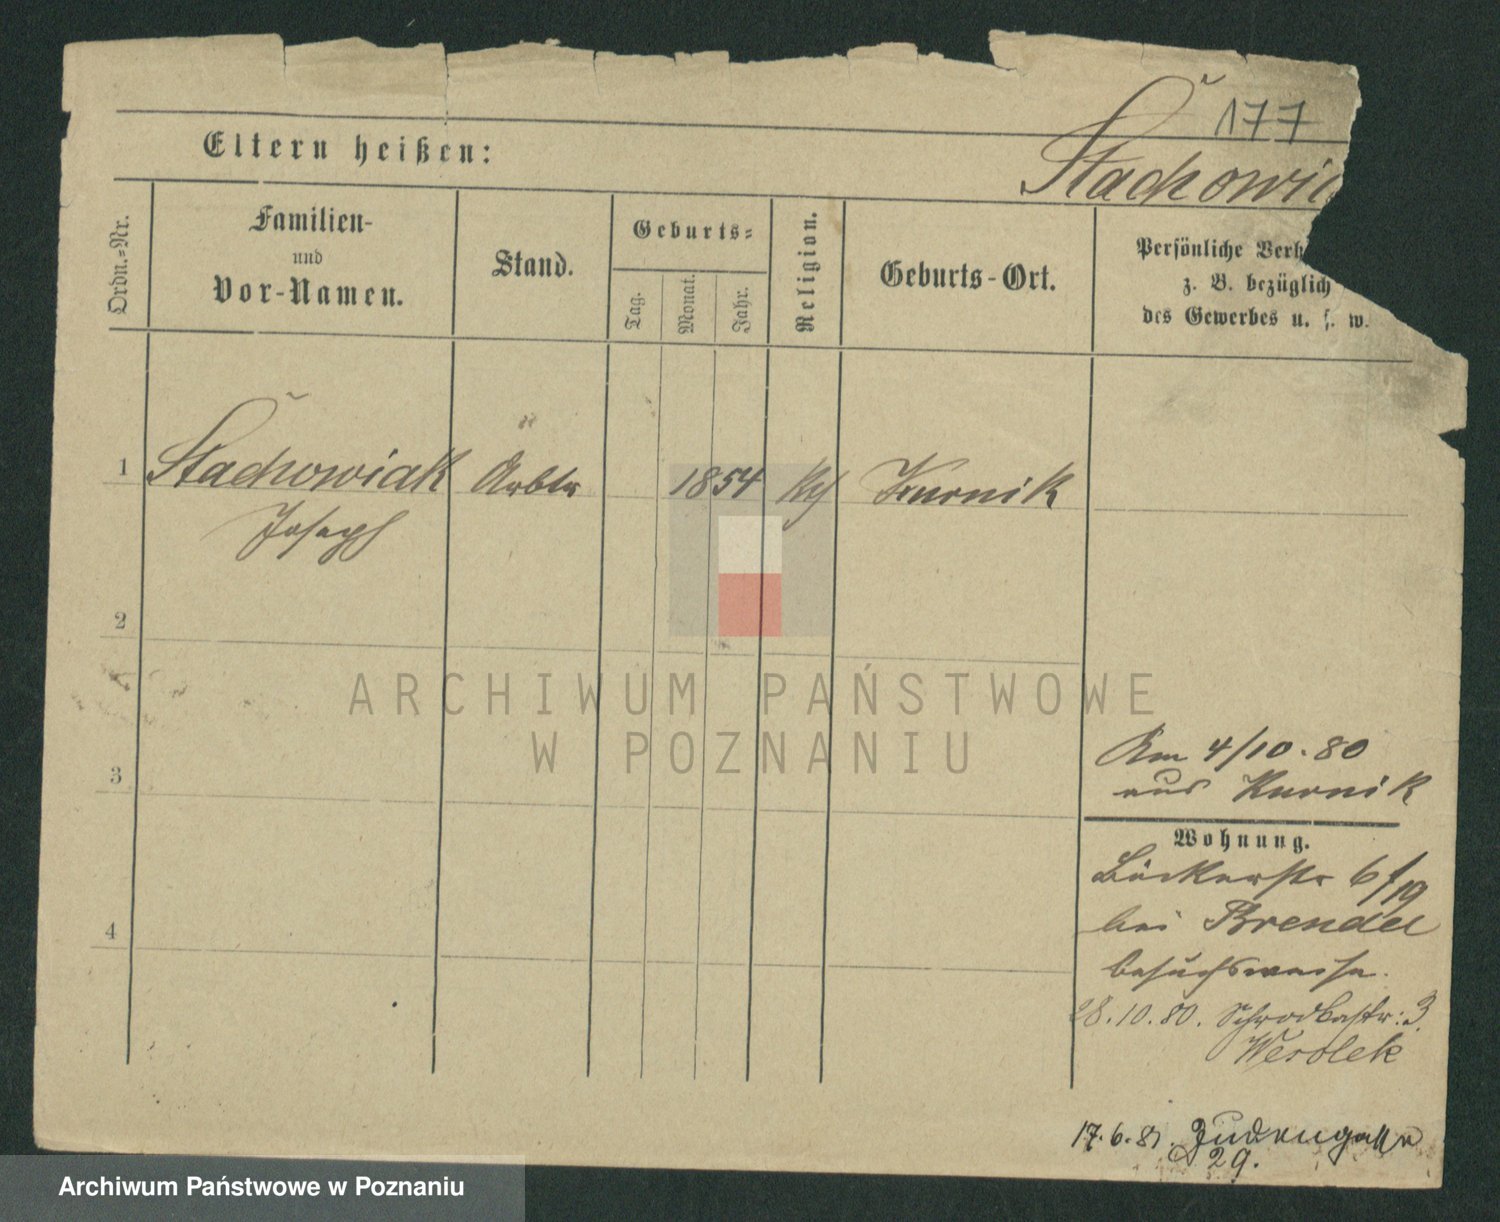 177
Eltern heißen:
Stachowi
Ordn.=Nr.
Familien-
und
Vor-Namen.
Stand.
Geburts=
Tag.
Monat.
Jahr.
Religion.
Geburts-Ort.
Persönliche Verh
z. B. bezüglich
des Gewerbes u. s. w.
1
Stachowiak
Joseph
Arbtr
1854
Kth
Kurnik
2
3
4
Am 4/10.80
aus Kurnik
Wohnung.
Bäckerstr 6/19
bei Brendel
besuchsweise.
28.10.80. Schrodkastr: 3.
Wesolek
17.6.81. Judengasse
29.
ARCHIWUM PAŃSTWOWE
W POZNANIU
Archiwum Państwowe w Poznaniu